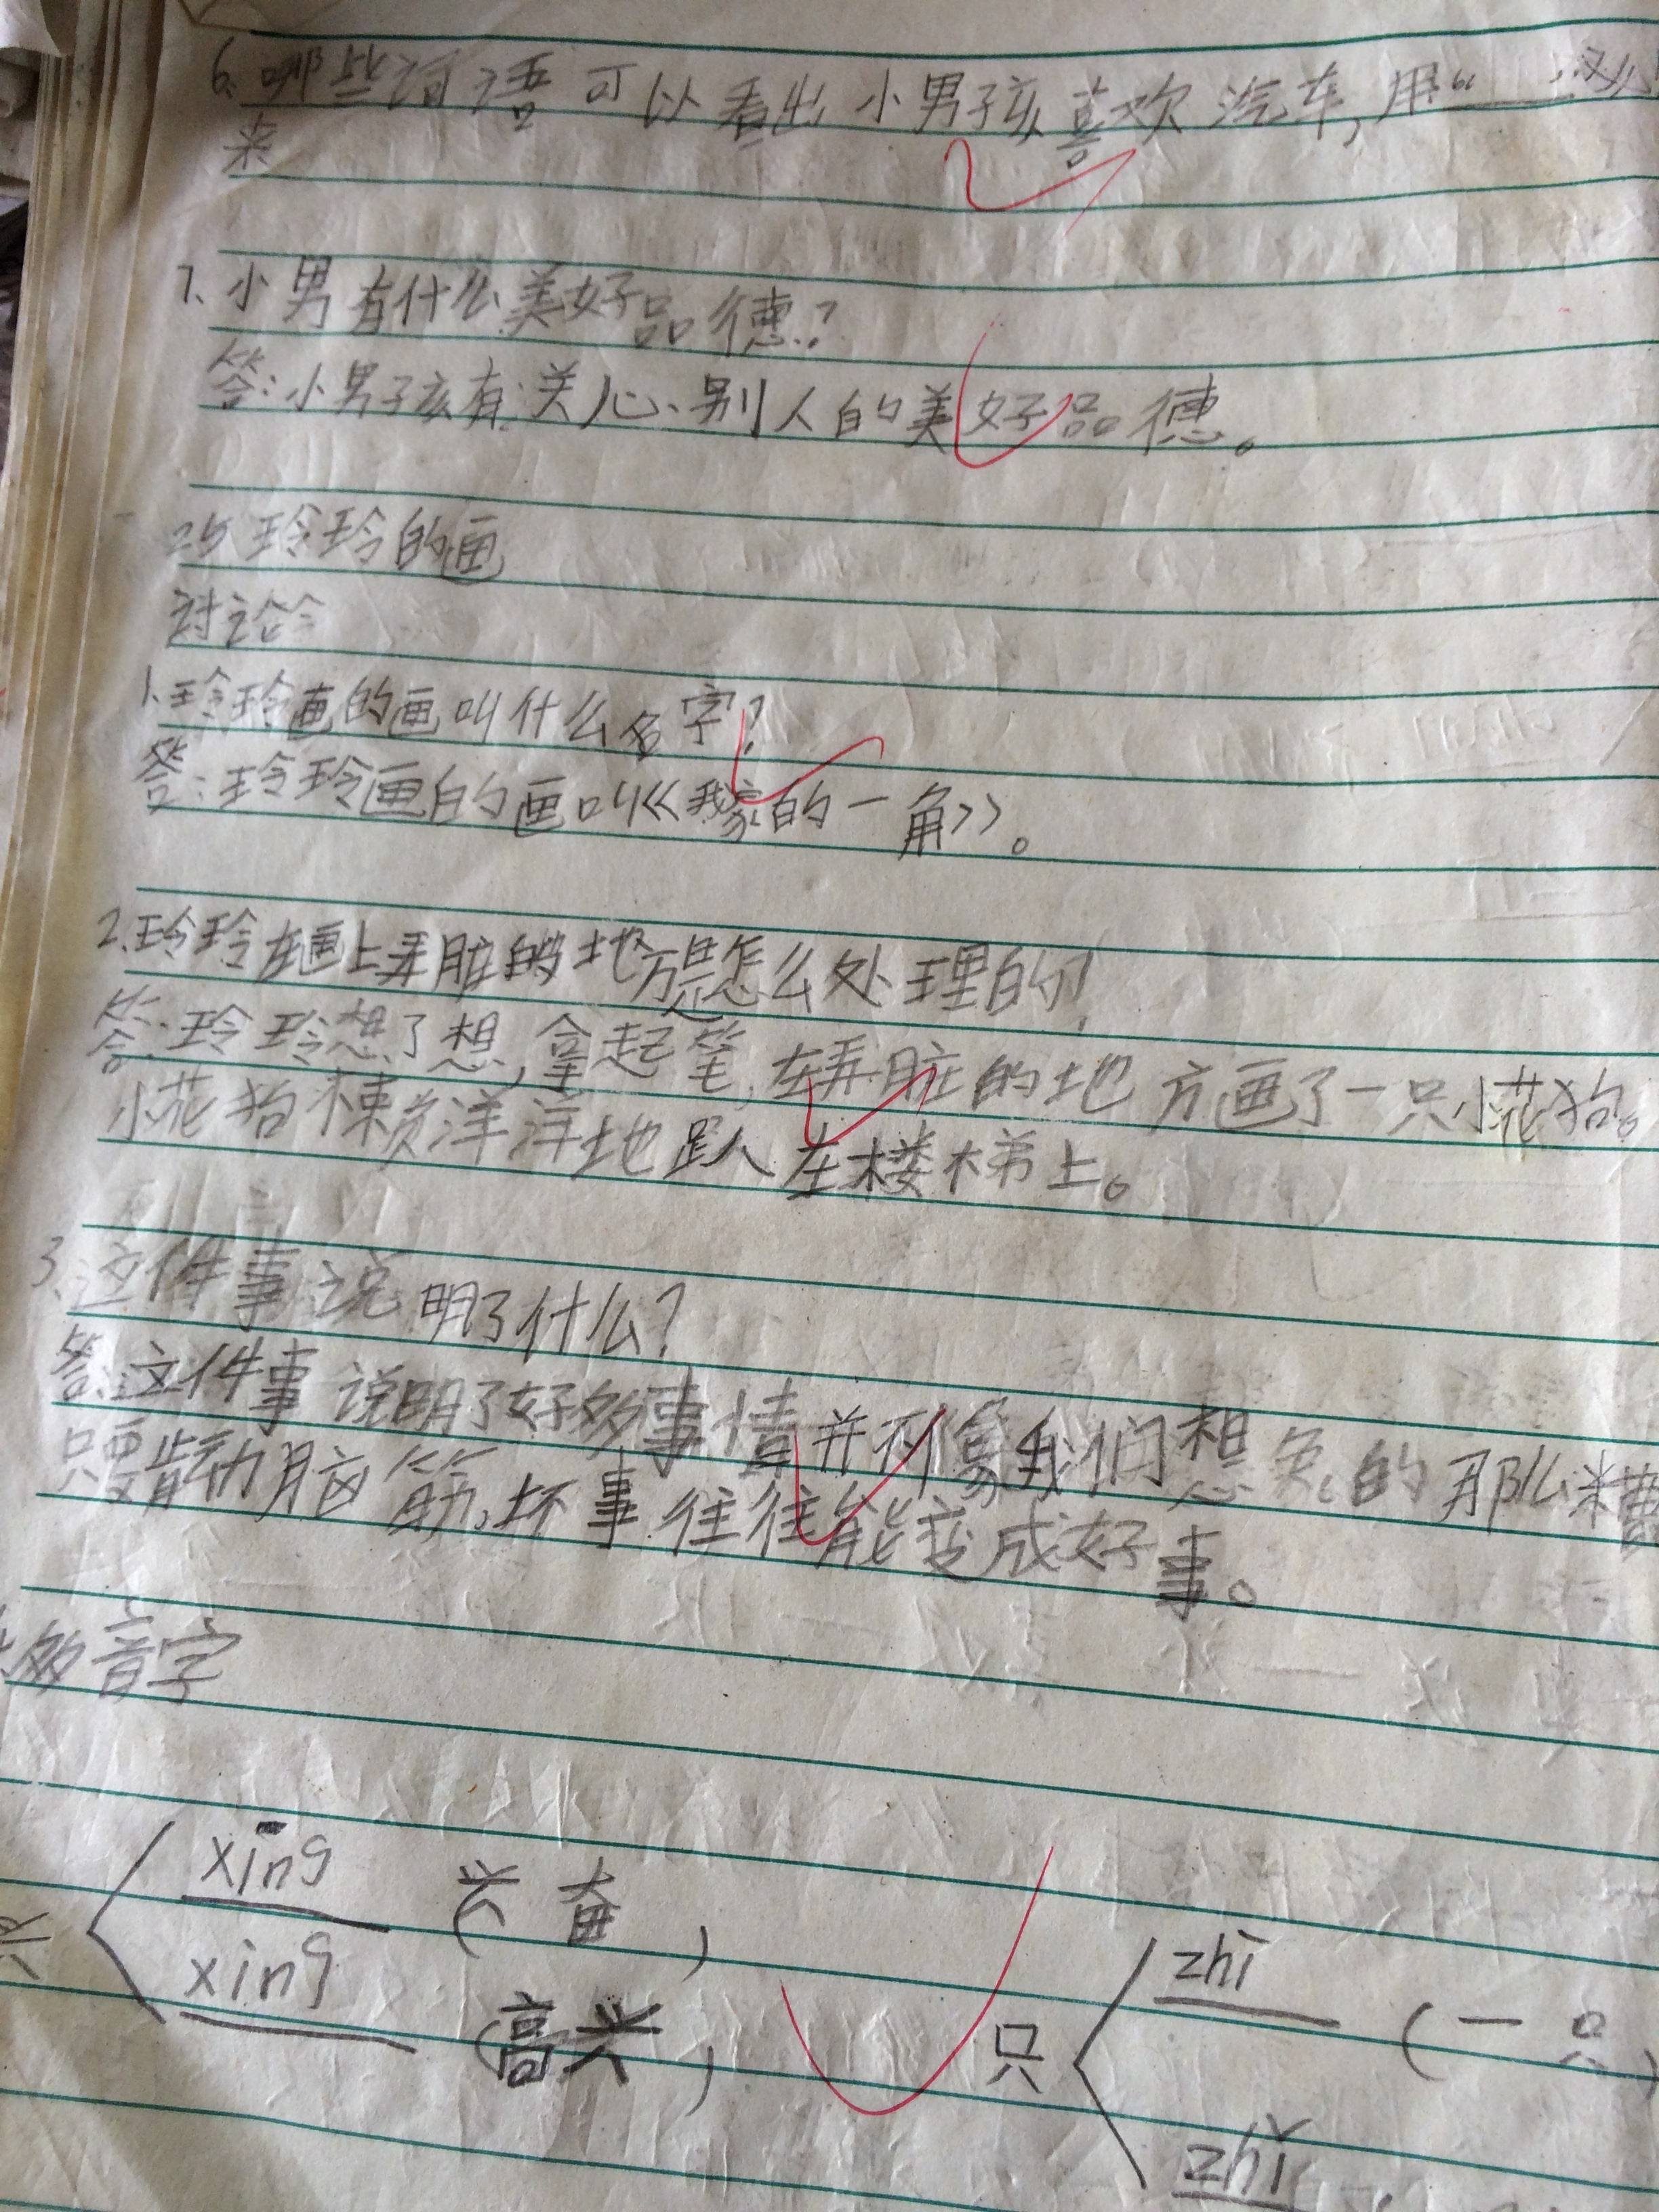 6、哪些词语可以看出小男孩喜欢汽车,用“
来
7、小男有什么美好品德?
答:小男孩有关心、别人的美好品德。
25 玲玲的画
讨论
1、玲玲画的画叫什么名字?
答:玲玲画的画叫《我家的一角》。
2、玲玲在画上弄脏的地方是怎么处理的!
答:玲玲想了想,拿起笔,在弄脏的地方画了一只小花狗。
小花狗懒洋洋地趴在楼梯上。
3、这件事说明了什么?
答:这件事说明了好多事情并不像我们想象的那么糟
只要能动脑筋,坏事往往能变成好事。
多音字
xīng (兴奋)
兴
xing (高兴)
zhī (一只)
只
zhǐ